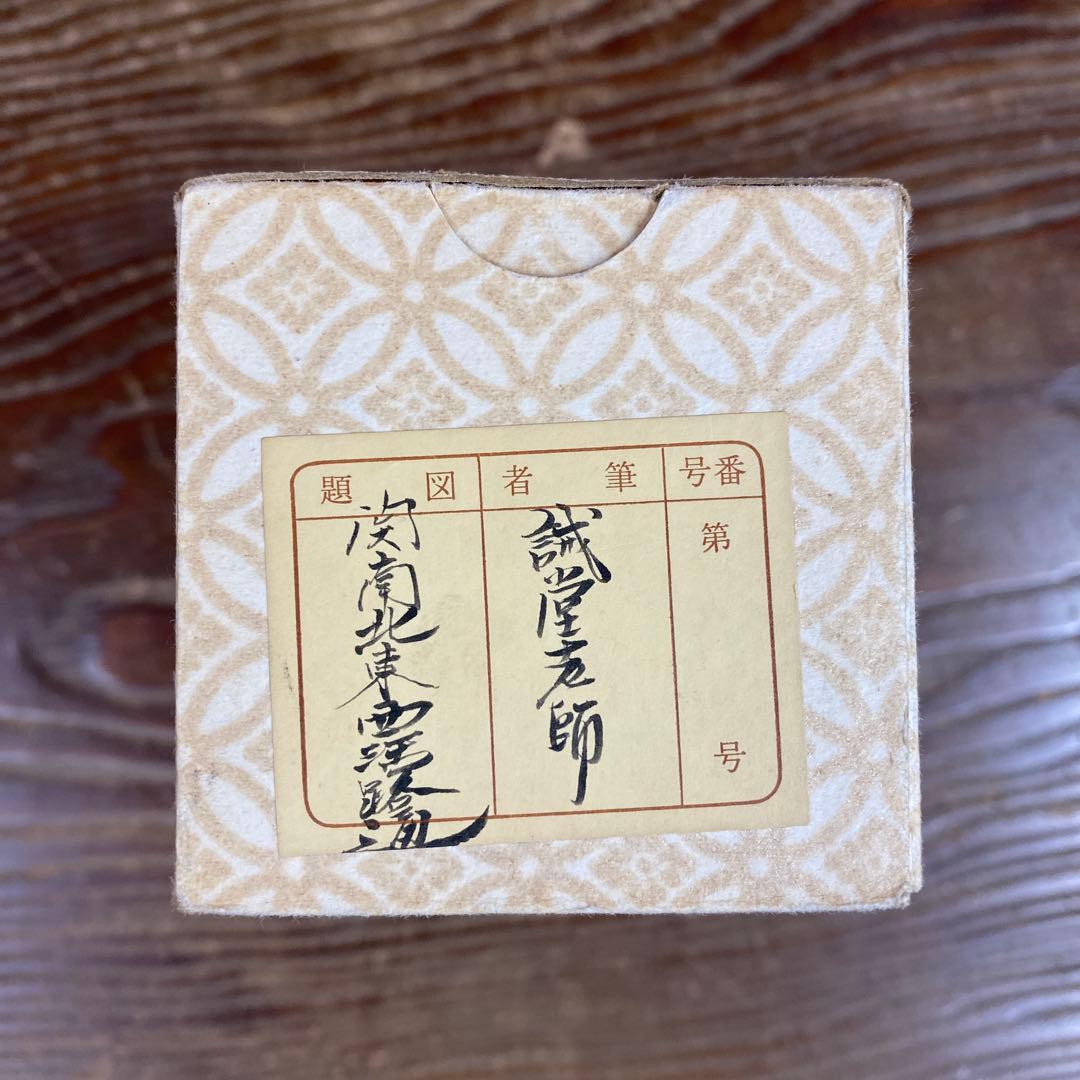 番号
第 号
筆者
誠堂老師
図題
関南北東西活路通